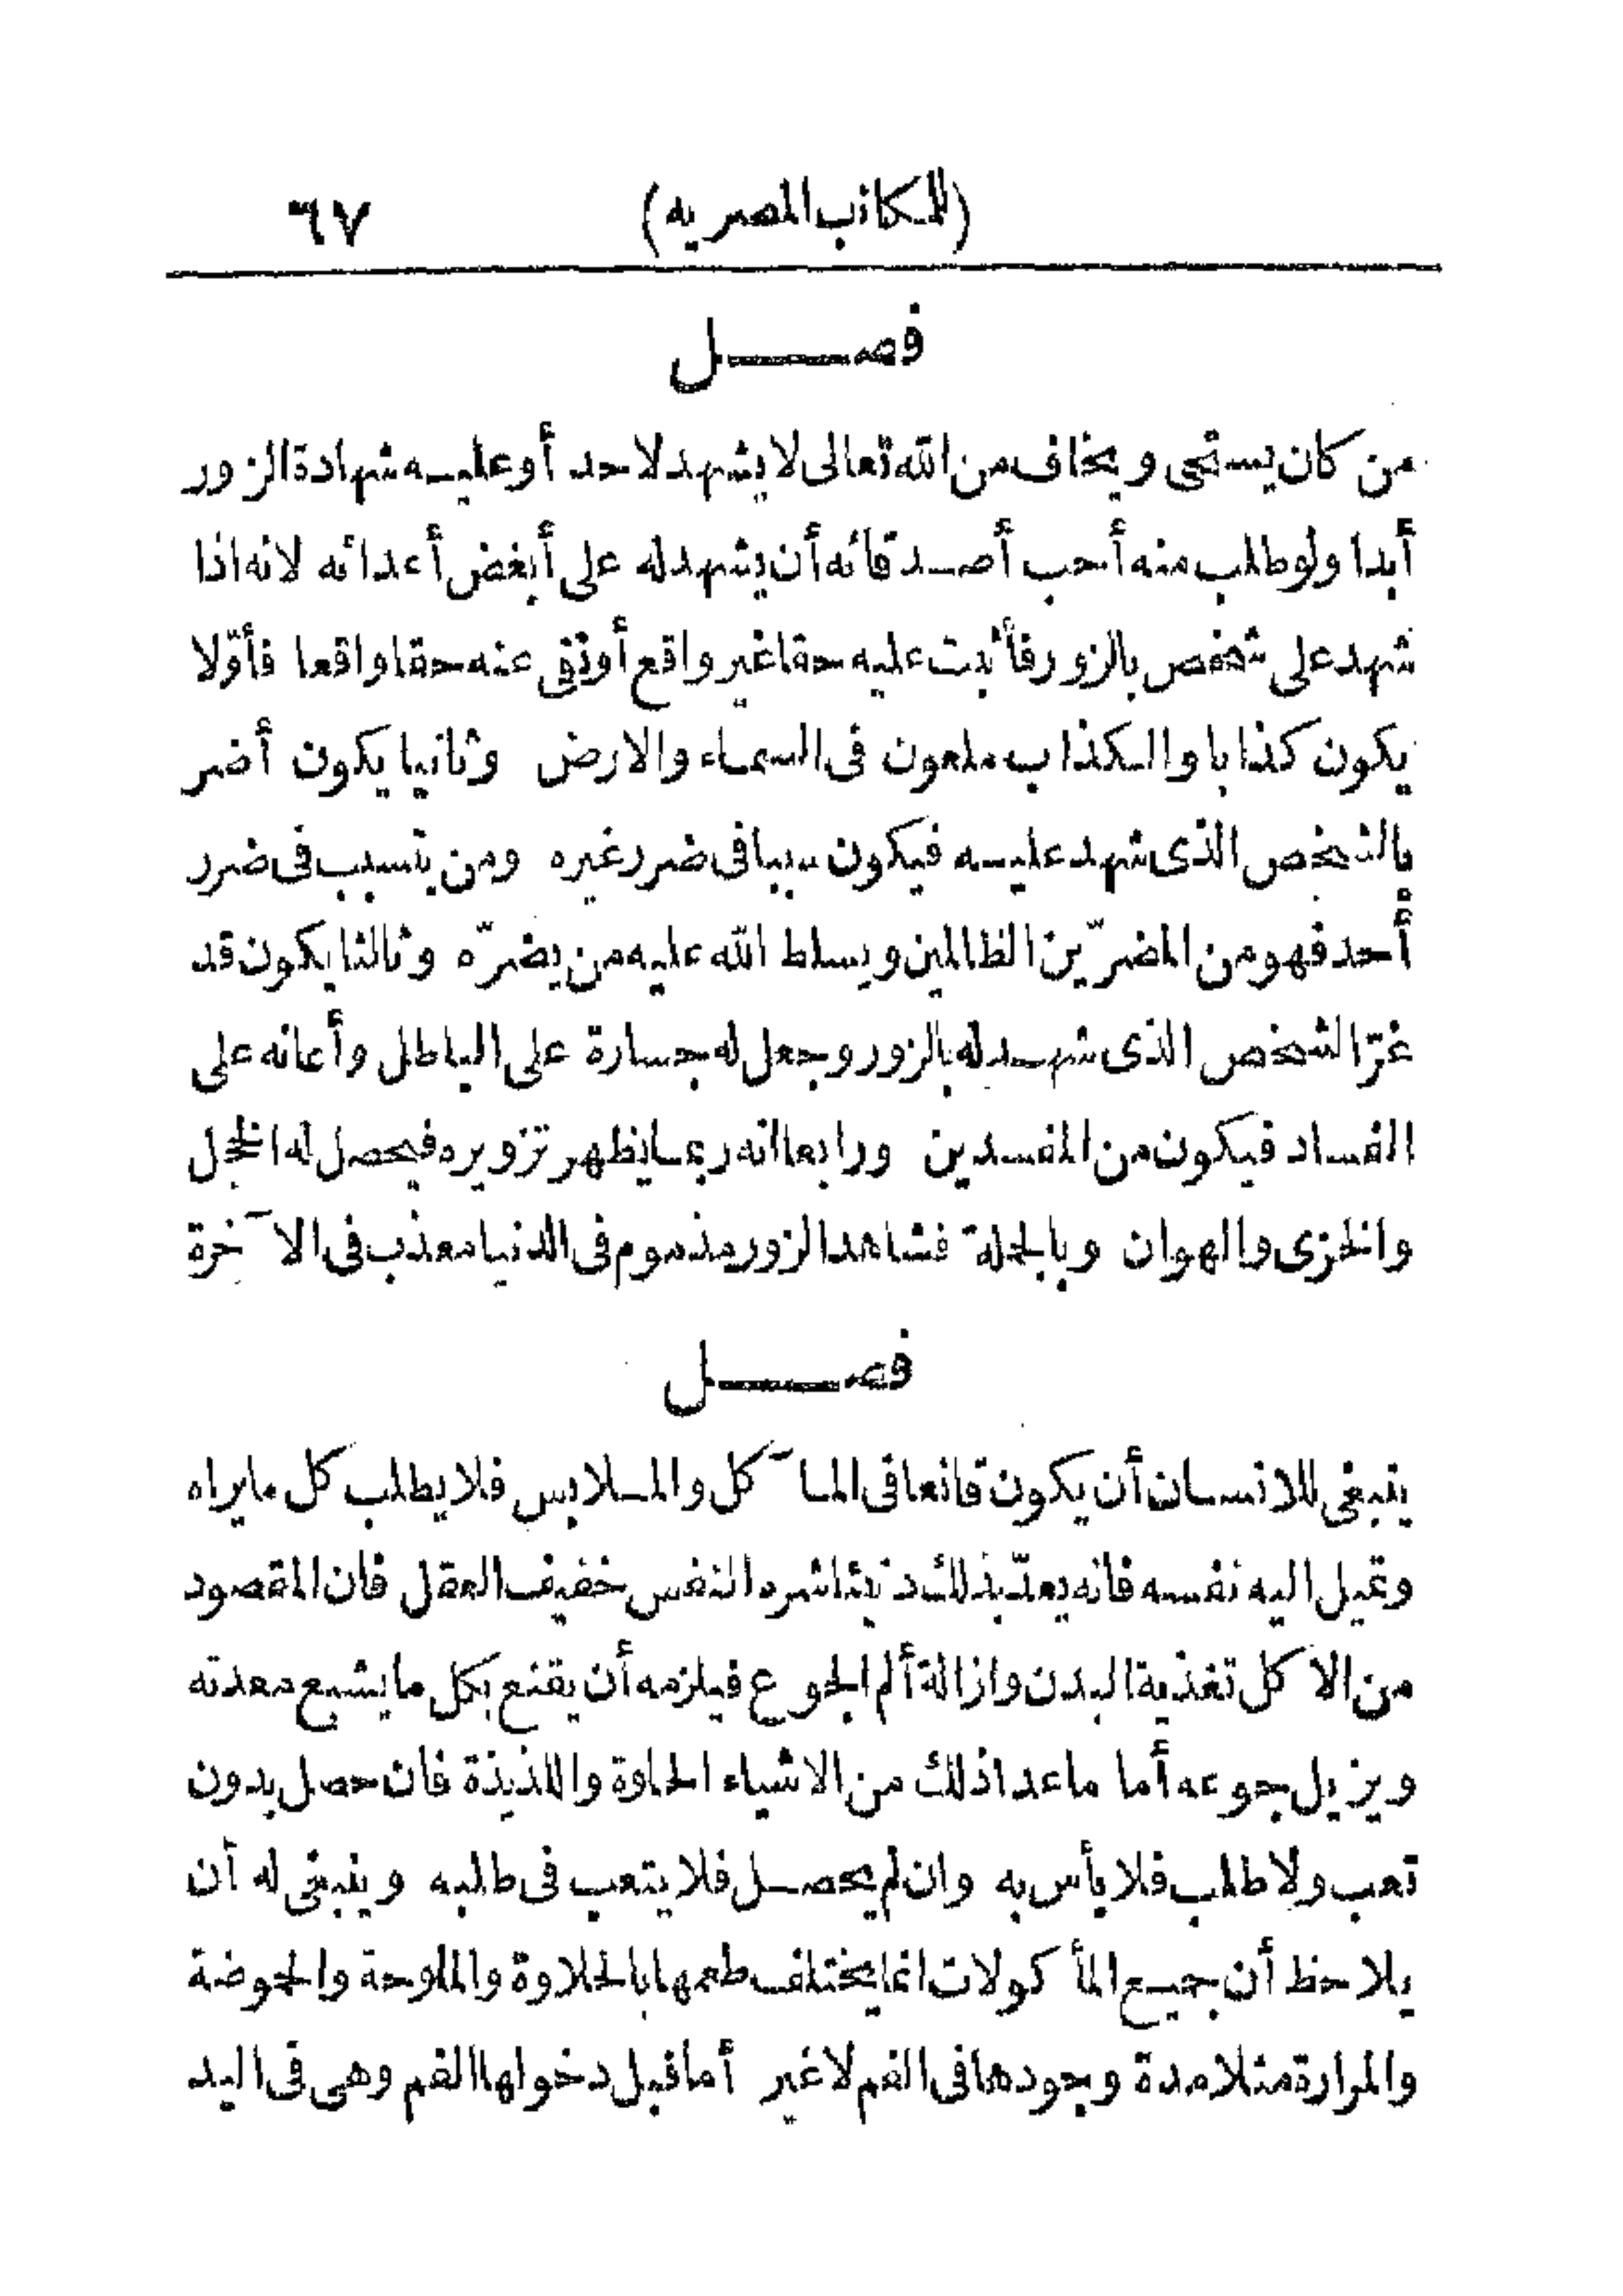 (للمكاتب المصريه) ٦٧
فصل
من كان يستحى ويخاف من الله تعالى لا يشهد لاحد أو عليه شهادة الزور
أبدا ولو طلب منه أحب أصدقائه أن يشهد له على أبغض أعدائه لانه اذا
شهد على شخص بالزور فأثبت عليه حقا غير واقع أو نفى عنه حقا واقعا فأوّلا
يكون كذابا والكذاب ملعون فى السماء والارض وثانيا يكون أضر
بالشخص الذى شهد عليه فيكون سببا فى ضرر غيره ومن يتسبب فى ضرر
أحد فهو من المضرّين الظالمين ويسلط الله عليه من يضرّه وثالثا يكون قد
غرّ الشخص الذى شهد له بالزور وجعل له جسارة على الباطل وأعانه على
الفساد فيكون من المفسدين ورابعا انه ربما يظهر تزويره فيحصل له الخجل
والخزى والهوان وبالجملة فشاهد الزور مذموم فى الدنيا معذب فى الآخرة
فصل
ينبغى للانسان أن يكون قانعا فى المآكل والملابس فلا يطلب كل ما يراه
وتميل اليه نفسه فانه يعدّ بذلك دنيئا شره النفس خفيف العقل فان المقصود
من الاكل تغذية البدن وازالة ألم الجوع فيلزمه أن يقنع بكل ما يشبع معدته
ويزيل جوعه أما ما عدا ذلك من الاشياء الحلوة واللذيذة فان حصل بدون
تعب ولا طلب فلا بأس به وان لم يحصل فلا يتعب فى طلبه وينبغى له أن
يلاحظ أن جميع المأكولات انما يختلف طعمها بالحلاوة والملوحة والحموضة
والمرارة مثلا مدة وجودها فى الفم لا غير أما قبل دخولها الفم وهى فى اليد